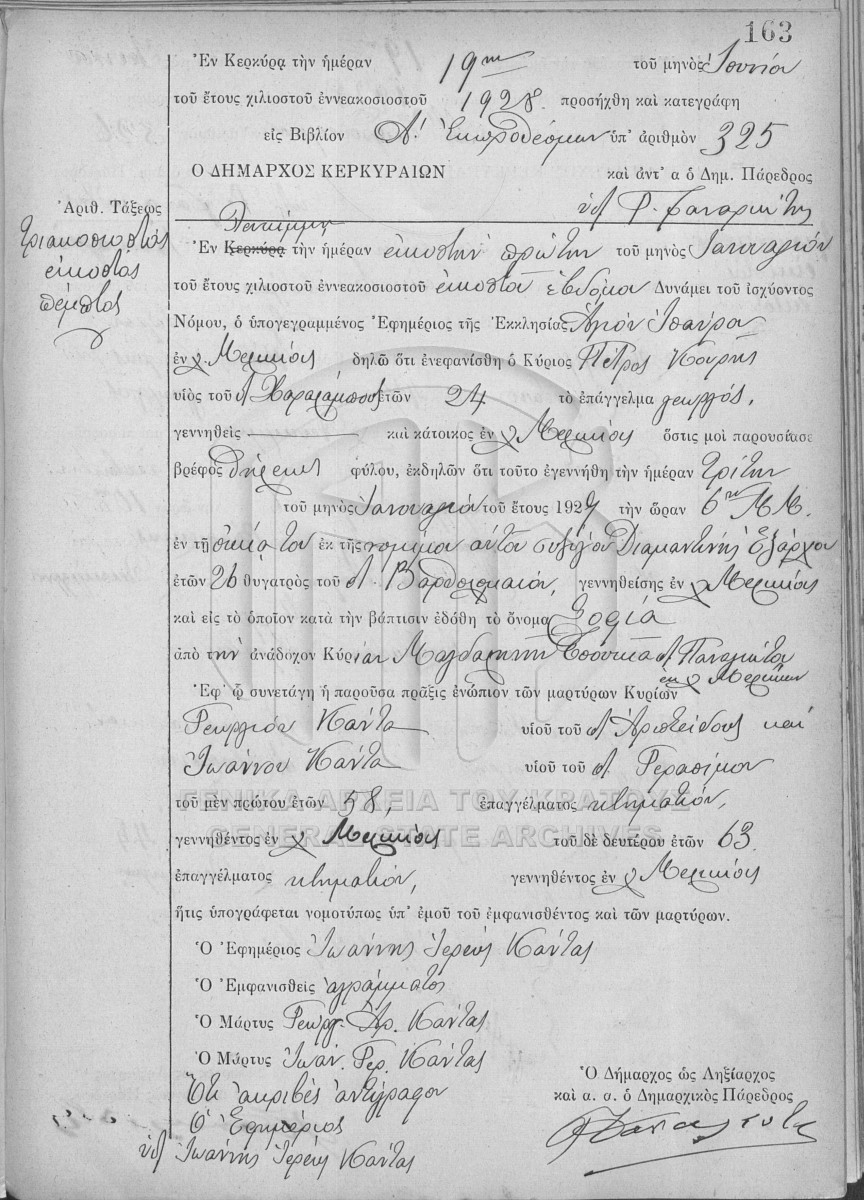 163
Ἐν Κερκύρᾳ τὴν ἡμέραν 19ην τοῦ μηνὸς Ἰουνίου
τοῦ ἔτους χιλιοστοῦ ἐννεακοσιοστοῦ 1928. προσήχθη καὶ κατεγράφη
εἰς Βιβλίον Α! Ἐκπροθέσμων ὑπ' ἀριθμὸν 325
Ο ΔΗΜΑΡΧΟΣ ΚΕΡΚΥΡΑΙΩΝ καὶ ἀντ' α ὁ Δημ. Πάρεδρος
Ἀριθ. Τάξεως
Τριακοσιοστός
εἰκοστός
πέμπτος
Ἐν Κερκύρᾳ τὴν ἡμέραν εἰκοστὴν πρώτην τοῦ μηνὸς Ἰανουαρίου
τοῦ ἔτους χιλιοστοῦ ἐννεακοσιοστοῦ εἰκοστοῦ ἑβδόμου Δυνάμει τοῦ ἰσχύοντος
Νόμου, ὁ ὑπογεγραμμένος Ἐφημέριος τῆς Ἐκκλησίας Ἁγίου
ἐν χ. δηλῶ ὅτι ἐνεφανίσθη ὁ Κύριος Πέτρος
υἱὸς τοῦ Χαραλάμπους ἐτῶν 24 τὸ ἐπάγγελμα γεωργός,
γεννηθεὶς καὶ κάτοικος ἐν χ ὅστις μοὶ παρουσίασε
βρέφος θήλεως φύλου, ἐκδηλῶν ὅτι τοῦτο ἐγεννήθη τὴν ἡμέραν τρίτην
τοῦ μηνὸς Ἰανουαρίου τοῦ ἔτους 1927 τὴν ὥραν 6ην Μ.Μ.
ἐν τῇ οἰκίᾳ του ἐκ τῆς νομίμου αὐτοῦ συζύγου Διαμαντίνης Ἐξάρχου
ἐτῶν 26 θυγατρὸς τοῦ Βαρθολομαίου, γεννηθείσης ἐν χ
καὶ εἰς τὸ ὁποῖον κατὰ τὴν βάπτισιν ἐδόθη τὸ ὄνομα Σοφία
ἀπὸ τὴν ἀνάδοχον Κυρίαν Μαγδαληνὴν Παναγιώτου
ἐκ χ
Ἐφ' ᾧ συνετάγη ἡ παροῦσα πρᾶξις ἐνώπιον τῶν μαρτύρων Κυρίων
Γεωργίου Κάντα υἱοῦ τοῦ Ἀριστείδους καὶ
Ἰωάννου Κάντα υἱοῦ τοῦ Γερασίμου
ΓΕΝΙΚΑ ΑΡΧΕΙΑ ΤΟΥ ΚΡΑΤΟΥΣ
τοῦ μὲν πρώτου ἐτῶν 58, ἐπαγγέλματος κτηματίου,
GENERAL STATE ARCHIVES
γεννηθέντος ἐν χ τοῦ δὲ δευτέρου ἐτῶν 63
ἐπαγγέλματος κτηματίου, γεννηθέντος ἐν χ
ἥτις ὑπογράφεται νομοτύπως ὑπ' ἐμοῦ τοῦ ἐμφανισθέντος καὶ τῶν μαρτύρων.
Ὁ Ἐφημέριος Ἰωάννης Ἱερεύς Κάντας
Ὁ Ἐμφανισθεὶς ἀγράμματος
Ὁ Μάρτυς Γεωργ. Ἀρ. Κάντας
Ὁ Μάρτυς Ἰωάν. Γερ. Κάντας
Ὅτι ἀκριβὲς ἀντίγραφον
Ὁ Ἐφημέριος
Ἰωάννης Ἱερεύς Κάντας
Ὁ Δήμαρχος ὡς Ληξίαρχος
καὶ α. α. ὁ Δημαρχικὸς Πάρεδρος